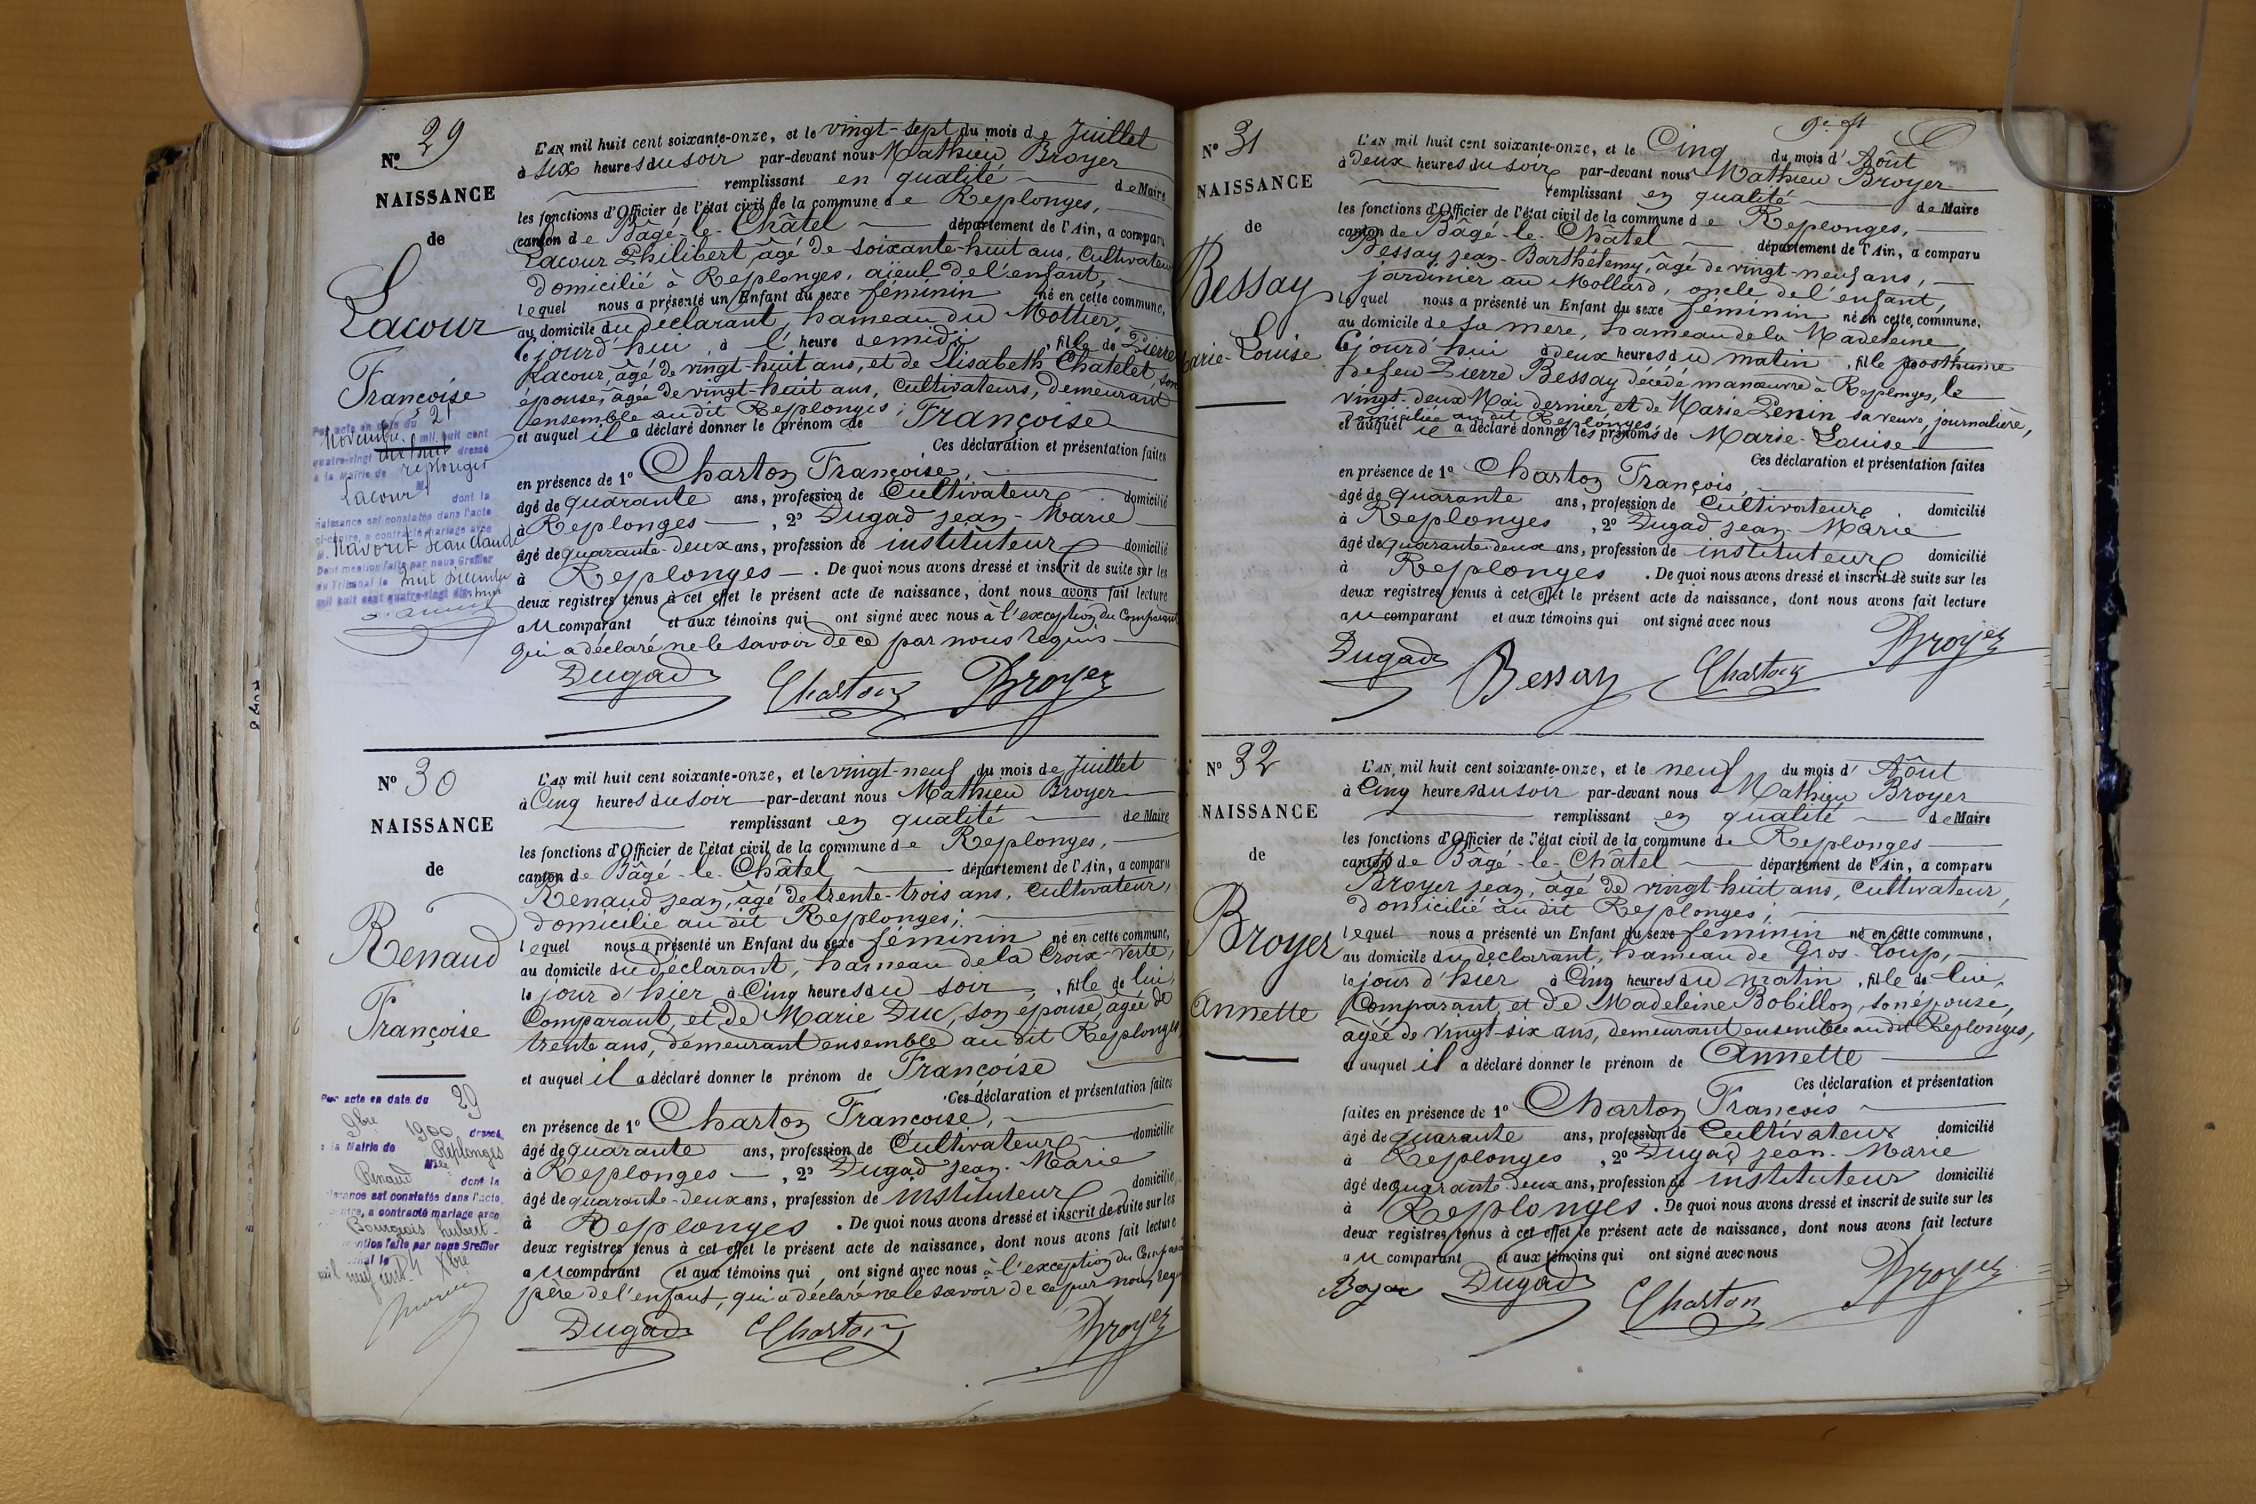 N° 29
NAISSANCE
de
Lacour
Françoise
Novembre 21
mil huit cent
quatre-vingt dix huit dressé
à la Mairie de replonges
Lacour dont la
naissance est constatée dans l'acte
ci-contre, a contracté mariage avec
M. Navoret Jean Claude
Dont mention faite par nous Greffier
du Tribunal le huit décembre
mil huit cent quatre-vingt dix-huit
L'AN mil huit cent soixante-onze, et le vingt-sept du mois de Juillet
à six heures du soir par-devant nous Mathieu Broyer
remplissant en qualité de Maire
les fonctions d'Officier de l'état civil de la commune de Replonges,
canton de Bâgé-le-Châtel département de l'Ain, a comparu
Lacour Philibert, âgé de soixante-huit ans, Cultivateur
domicilié à Replonges, aïeul de l'enfant,
lequel nous a présenté un Enfant du sexe féminin né en cette commune,
au domicile du déclarant, hameau du Mottier,
cejourd'hui à l'heure de midi, fille de Pierre
Lacour, âgé de vingt-huit ans, et de Elisabeth Chatelet, son
épouse, âgée de vingt-huit ans, Cultivateurs, demeurant
ensemble au dit Replonges;
et auquel il a déclaré donner le prénom de Françoise
Ces déclaration et présentation faites
en présence de 1° Charton Françoise,
âgé de quarante ans, profession de Cultivateur domicilié
à Replonges, 2° Dugad Jean-Marie
âgé de quarante-deux ans, profession de instituteur domicilié
à Replonges. De quoi nous avons dressé et inscrit de suite sur les
deux registres tenus à cet effet le présent acte de naissance, dont nous avons fait lecture
au comparant et aux témoins qui ont signé avec nous à l'exception du Comparant
qui a déclaré ne le savoir de ce par nous requis
Dugad Charton Broyer
N° 30
NAISSANCE
de
Renaud
Françoise
Par acte en date du 29
9bre 1900 dressé
à la Mairie de Replonges
Mlle
Renaud dont la
naissance est constatée dans l'acte
ci-contre, a contracté mariage avec
Bourgeois hubert
mention faite par nous Greffier
mil neuf cent. 4 Xbre
L'AN mil huit cent soixante-onze, et le vingt-neuf du mois de Juillet
à Cinq heures du soir par-devant nous Mathieu Broyer
remplissant en qualité de Maire
les fonctions d'Officier de l'état civil de la commune de Replonges,
canton de Bâgé-le-Châtel département de l'Ain, a comparu
Renaud Jean, âgé de trente-trois ans, Cultivateur,
domicilié au dit Replonges;
lequel nous a présenté un Enfant du sexe féminin né en cette commune,
au domicile du déclarant, hameau de la Croix-Verte,
le jour d'hier à Cinq heures du soir, fille de lui,
Comparant, et de Marie Duc, son épouse, âgée de
trente ans, demeurant ensemble au dit Replonges
et auquel il a déclaré donner le prénom de Françoise
Ces déclaration et présentation faites
en présence de 1° Charton Françoise,
âgé de quarante ans, profession de Cultivateur domicilié
à Replonges, 2° Dugad Jean-Marie
âgé de quarante-deux ans, profession de instituteur domicilié
à Replonges. De quoi nous avons dressé et inscrit de suite sur les
deux registres tenus à cet effet le présent acte de naissance, dont nous avons fait lecture
au comparant et aux témoins qui ont signé avec nous à l'exception du Comparant
père de l'enfant, qui a déclaré ne le savoir de ce par nous requis
Dugad Charton Broyer
N° 31
NAISSANCE
de
Bessay
Marie-Louise
L'AN mil huit cent soixante-onze, et le Cinq du mois d'Août
à deux heures du soir par-devant nous Mathieu Broyer
remplissant en qualité de Maire
les fonctions d'Officier de l'état civil de la commune de Replonges,
canton de Bâgé-le-Châtel département de l'Ain, a comparu
Bessay Jean-Barthélemy, âgé de vingt-neuf ans,
jardinier au Mollard, oncle de l'enfant,
lequel nous a présenté un Enfant du sexe féminin né en cette commune,
au domicile de sa mère, hameau de la Madeleine,
cejourd'hui à deux heures du matin, fille posthume
de feu Pierre Bessay décédé manœuvre à Replonges, le
vingt-deux Mai dernier, et de Marie Penin sa veuve, journalière,
domiciliée au dit Replonges,
et auquel il a déclaré donner les prénoms de Marie-Louise
Ces déclaration et présentation faites
en présence de 1° Charton François,
âgé de quarante ans, profession de Cultivateur domicilié
à Replonges, 2° Dugad Jean-Marie
âgé de quarante-deux ans, profession de instituteur domicilié
à Replonges. De quoi nous avons dressé et inscrit de suite sur les
deux registres tenus à cet effet le présent acte de naissance, dont nous avons fait lecture
au comparant et aux témoins qui ont signé avec nous
Dugad Bessay Charton Broyer
N° 32
NAISSANCE
de
Broyer
Annette
L'AN mil huit cent soixante-onze, et le neuf du mois d'Août
à Cinq heures du soir par-devant nous Mathieu Broyer
remplissant en qualité de Maire
les fonctions d'Officier de l'état civil de la commune de Replonges
canton de Bâgé-le-Châtel département de l'Ain, a comparu
Broyer Jean, âgé de vingt-huit ans, Cultivateur,
domicilié au dit Replonges;
lequel nous a présenté un Enfant du sexe féminin né en cette commune,
au domicile du déclarant, hameau de Gros-Loup,
le jour d'hier à Cinq heures du matin, fille de lui,
Comparant, et de Madeleine Bobillon, son épouse,
âgée de vingt-six ans, demeurant ensemble au dit Replonges,
et auquel il a déclaré donner le prénom de Annette
Ces déclaration et présentation
faites en présence de 1° Charton François
âgé de quarante ans, profession de Cultivateur domicilié
à Replonges, 2° Dugad Jean-Marie
âgé de quarante-deux ans, profession de instituteur domicilié
à Replonges. De quoi nous avons dressé et inscrit de suite sur les
deux registres tenus à cet effet le présent acte de naissance, dont nous avons fait lecture
au comparant et aux témoins qui ont signé avec nous
Dugad Charton Broyer